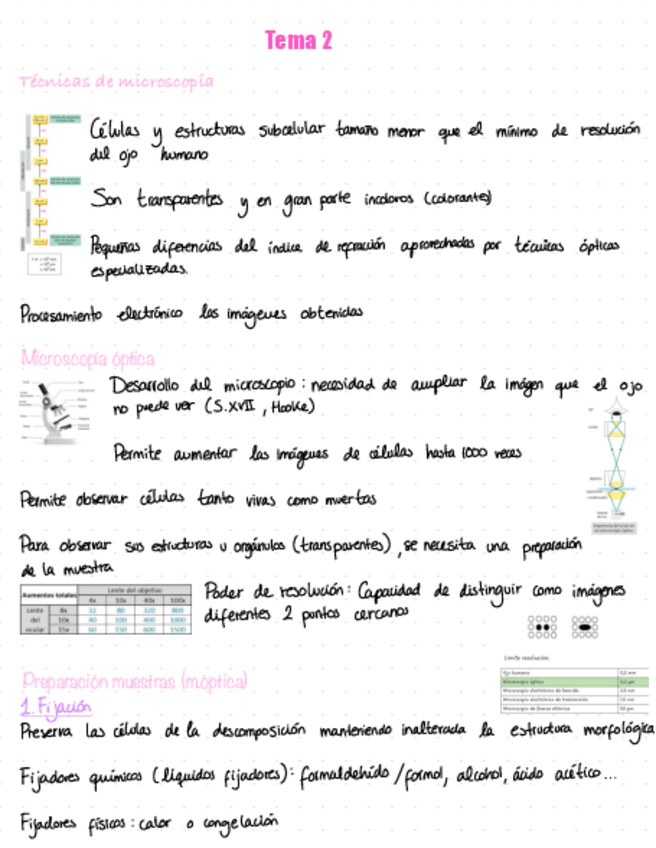 Tema 2
Técnicas de microscopía
Células y estructuras subcelular tamaño menor que el mínimo de resolución
del ojo humano
Son transparentes y en gran parte incoloros (colorante)
Pequeñas diferencias del índice de refracción aprovechadas por técnicas ópticas
especializadas.
Procesamiento electrónico las imágenes obtenidas
Microscopía óptica
Desarrollo del microscopio: necesidad de ampliar la imágen que el ojo
no puede ver (S.XVII, Hooke)
Permite aumentar las imágenes de células hasta 1000 veces
Permite observar células tanto vivas como muertas
Para observar sus estructuras u orgánulos (transparentes), se necesita una preparación
de la muestra
Aumentos totales Lente del objetivo
4x 10x 40x 100x
Lente 8x 32 80 320 800
del 10x 40 100 400 1000
ocular 15x 60 150 600 1500
Poder de resolución: Capacidad de distinguir como imágenes
diferentes 2 puntos cercanos
Límite resolución:
Ojo humano 0,2 mm
Microscopio óptico 0,2 µm
Preparación muestras (m.óptica)
1. Fijación
Preserva las células de la descomposición manteniendo inalterada la estructura morfológica
Fijadores químicos (líquidos fijadores): formaldehído/formol, alcohol, ácido acético...
Fijadores físicos: calor o congelación